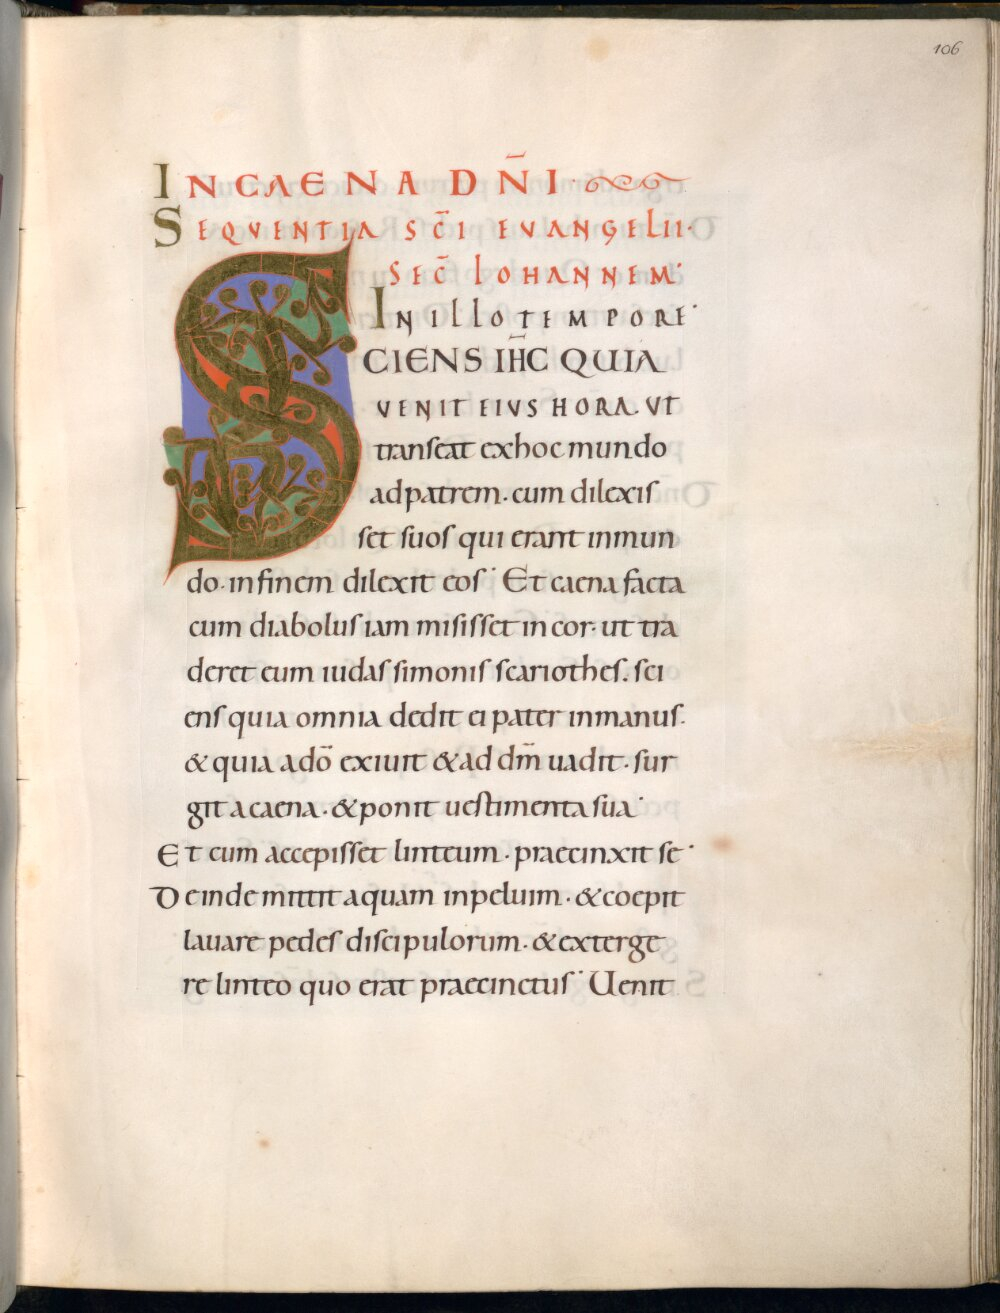 106
IN CAENA DN̄I
SEQVENTIA SC̄I EVANGELII·
SEC̄ IOHANNEM·
IN ILLO TEMPORE·
SCIENS IH̄C QUIA
UENIT EIVS HORA. VT
tranſeat ex hoc mundo
ad patrem. cum dilexiſ
ſet ſuoſ qui erant in mun
do. in finem dilexit eoſ· Et caena facta
cum diaboluſ iam miſiſſet in cor. ut tra
deret eum iudaſ ſimoniſ ſcariotheſ. ſci
enſ quia omnia dedit ei pater in manuſ.
& quia a dō exiuit & ad dm̄ uadit. ſur
git a caena. & ponit ueſtimenta ſua·
Et cum accepiſſet linteum. praecinxit ſe·
Deinde mittit aquam in peluim. & coepit
lauare pedeſ diſcipulorum. & exterge
re linteo quo erat praecinctuſ· Uenit